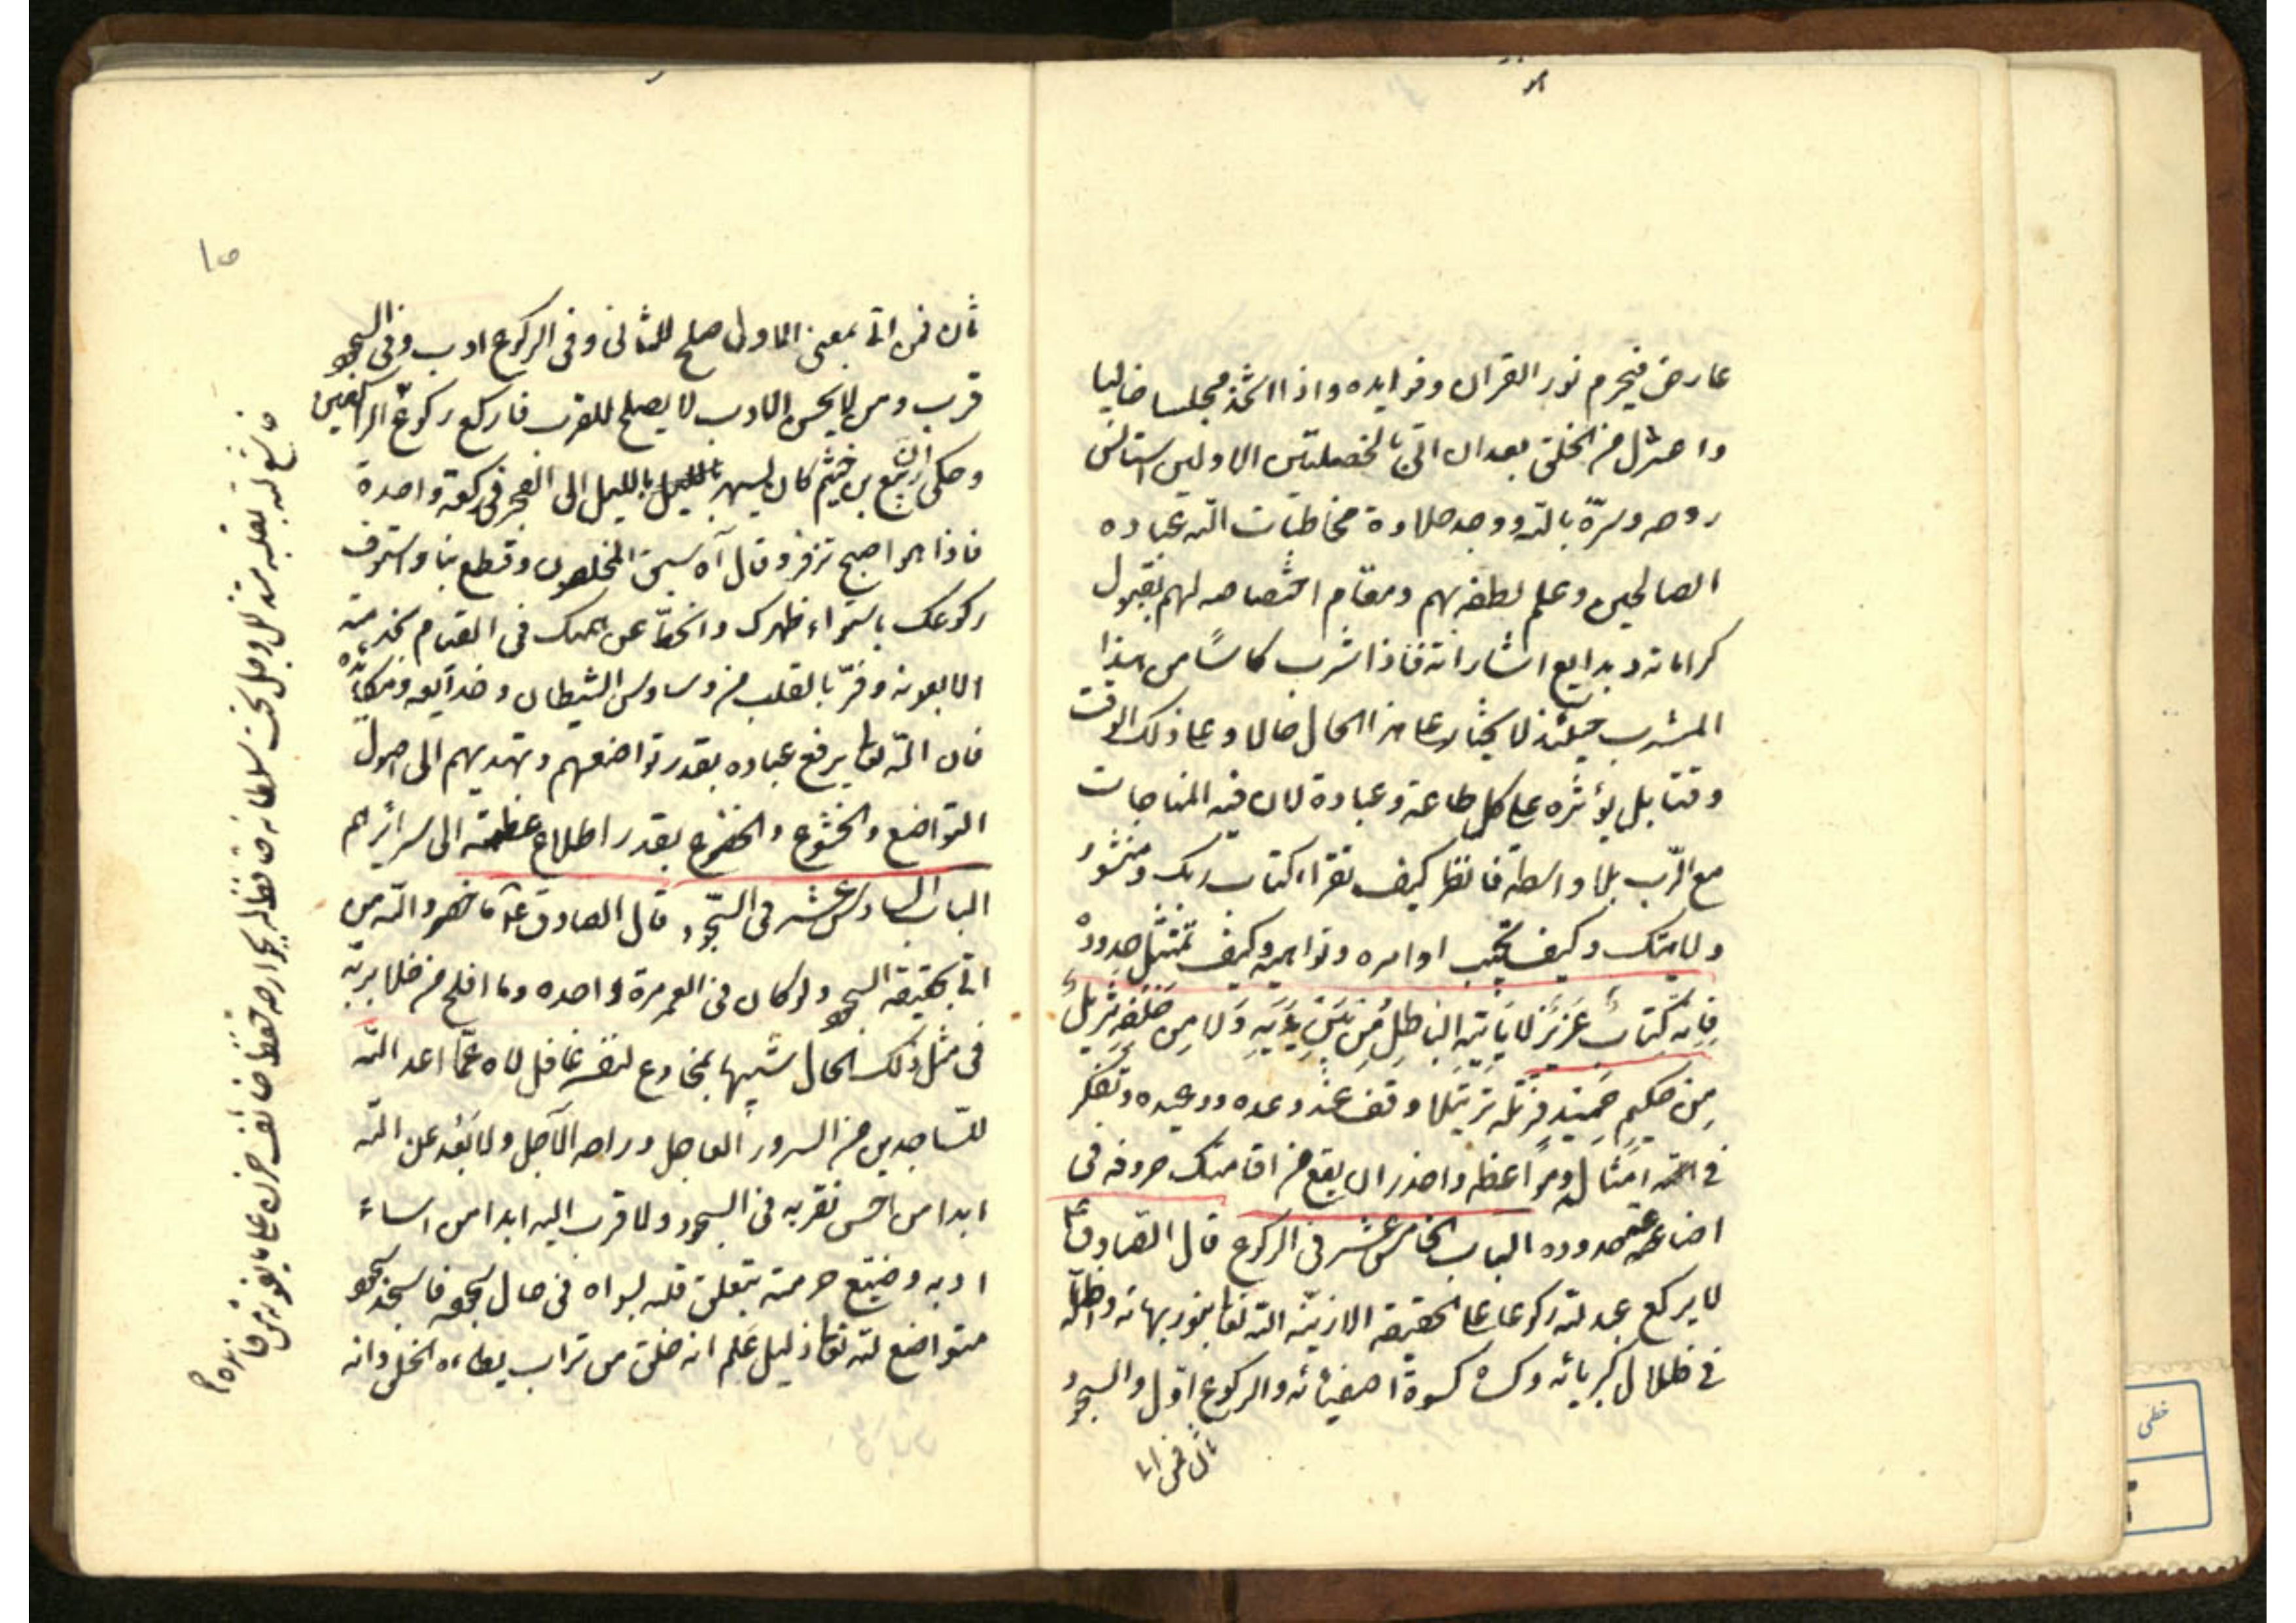 عارض فيحرم نور القران وفوايده واذا اتخذ مجلسا خاليا
واعتزل من الخلق بعد ان اتى بالخصلتين الاولين استانس
روحه وسرّه بالله ووجد حلاوة مخاطبات الله عباده
الصالحين وعلم لطفه بهم ومقام اختصاصه لهم بقبول
كراماته وبدايع اشاراته فاذا شرب كاسًا من هذا
المشرب حينئذ لا يختار على هذا الحال حالا وعلى ذلك الوقت
وقتا بل يؤثره على كل طاعة وعبادة لان فيه المناجات
مع الرّب بلا واسطة فانظر كيف تقراء كتاب ربك ومنشور
ولايتك وكيف تجيب اوامره ونواهيه وكيف تمتثل حدوده
فَاِنّه كتابٌ عَزيز لا يَاتيه الباطِل مِن بَيْنِ يَدَيهِ وَلا مِن خَلفِه تنزيلٌ
مِن حكيمٍ حَمِيدٍ فرتّله ترتيلا وقف عند وعده ووعيده وتفكر
في امثاله ومواعظه واحذر ان يقع من اقامتك حروفه فى
اضاعة حدوده الباب الخامس عشر فى الركوع قال الصادق ع
لا يركع عبد لله ركوعا على الحقيقة الا زيّنه الله تعا بنور بهائه واظله
في ظلال كبريائه وكساه كسوة اصفيائه والركوع اوّل والسجود
ثان فمن اتى
١٥
ثان فمن اتى بمعنى الاول صلح للثانى وفى الركوع ادب وفى السجود
قرب ومن لا يحسن الادب لا يصلح للقرب فاركع ركوع الراكعين
وحكى ان ربيع بن خثيم كان يسهر بالليل الى الفجر فى ركعة واحدة
فاذا هو اصبح تزفر وقال آه سبق المخلصون وقطع بنا واستوف
ركوعك باستواء ظهرك وانحطّ عن همتك فى القيام بخدمته
الا بعونه وفرّ بالقلب من وساوس الشيطان وخدايعه ومكائده
فان الله تعا يرفع عباده بقدر تواضعهم ويهديهم الى اصول
التواضع والخشوع والخضوع بقدر اطلاع عظمته الى سرائرهم
الباب السادس عشر فى السّجود قال الصادق ع ما خسر والله من
اتى بحقيقة السجود ولو كان فى العمر مرة واحده وما افلح من خلا بربّه
فى مثل ذلك الحال شبيها بمخادع لنفسه غافل لاه عمّا اعد الله
للسّاجدين من السرور العاجل وراحه الآجل ولا بَعُد عن الله
ابدا من احسن تقربه فى السجود ولا قرب اليه ابدا من اساء
ادبه وضيّع حرمته بتعلق قلبه بسواه فى حال سجوده فاسجد سجود
متواضع لله تعا ذليل عَلِم انه خلق من تراب يطاءه الخلق وانه
خاشع لله بقلبه متذلل وجل تحت سلطانه حافظ له بجوارحه حفظ خائف حزن على ما يفوته من فائده